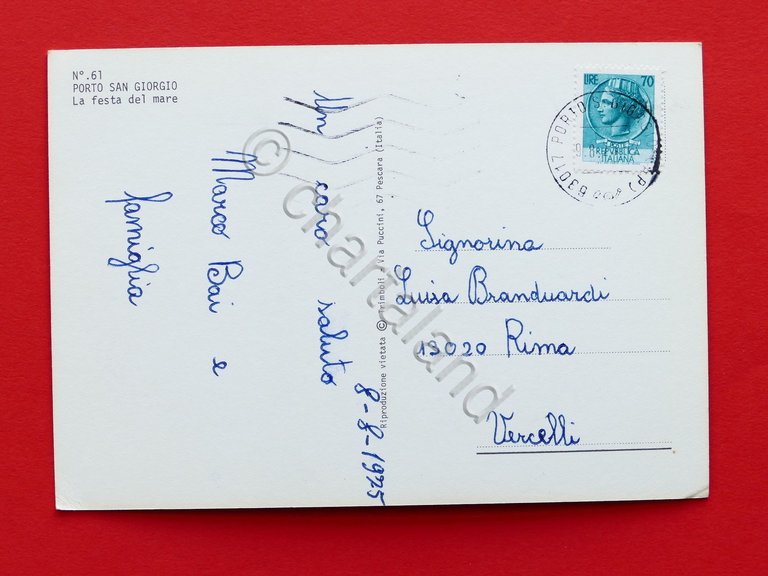 N°.61
PORTO SAN GIORGIO
La festa del mare
Un caro saluto
Marco Bai e
famiglia
8-8-1975
Riproduzione vietata © Trimboli - Via Puccini, 67 Pescara (Italia)
LIRE 70
REPUBBLICA
ITALIANA
63017 PORTO S.
Signorina
Luisa Branduardi
13020 Rima
Vercelli
© chartaland